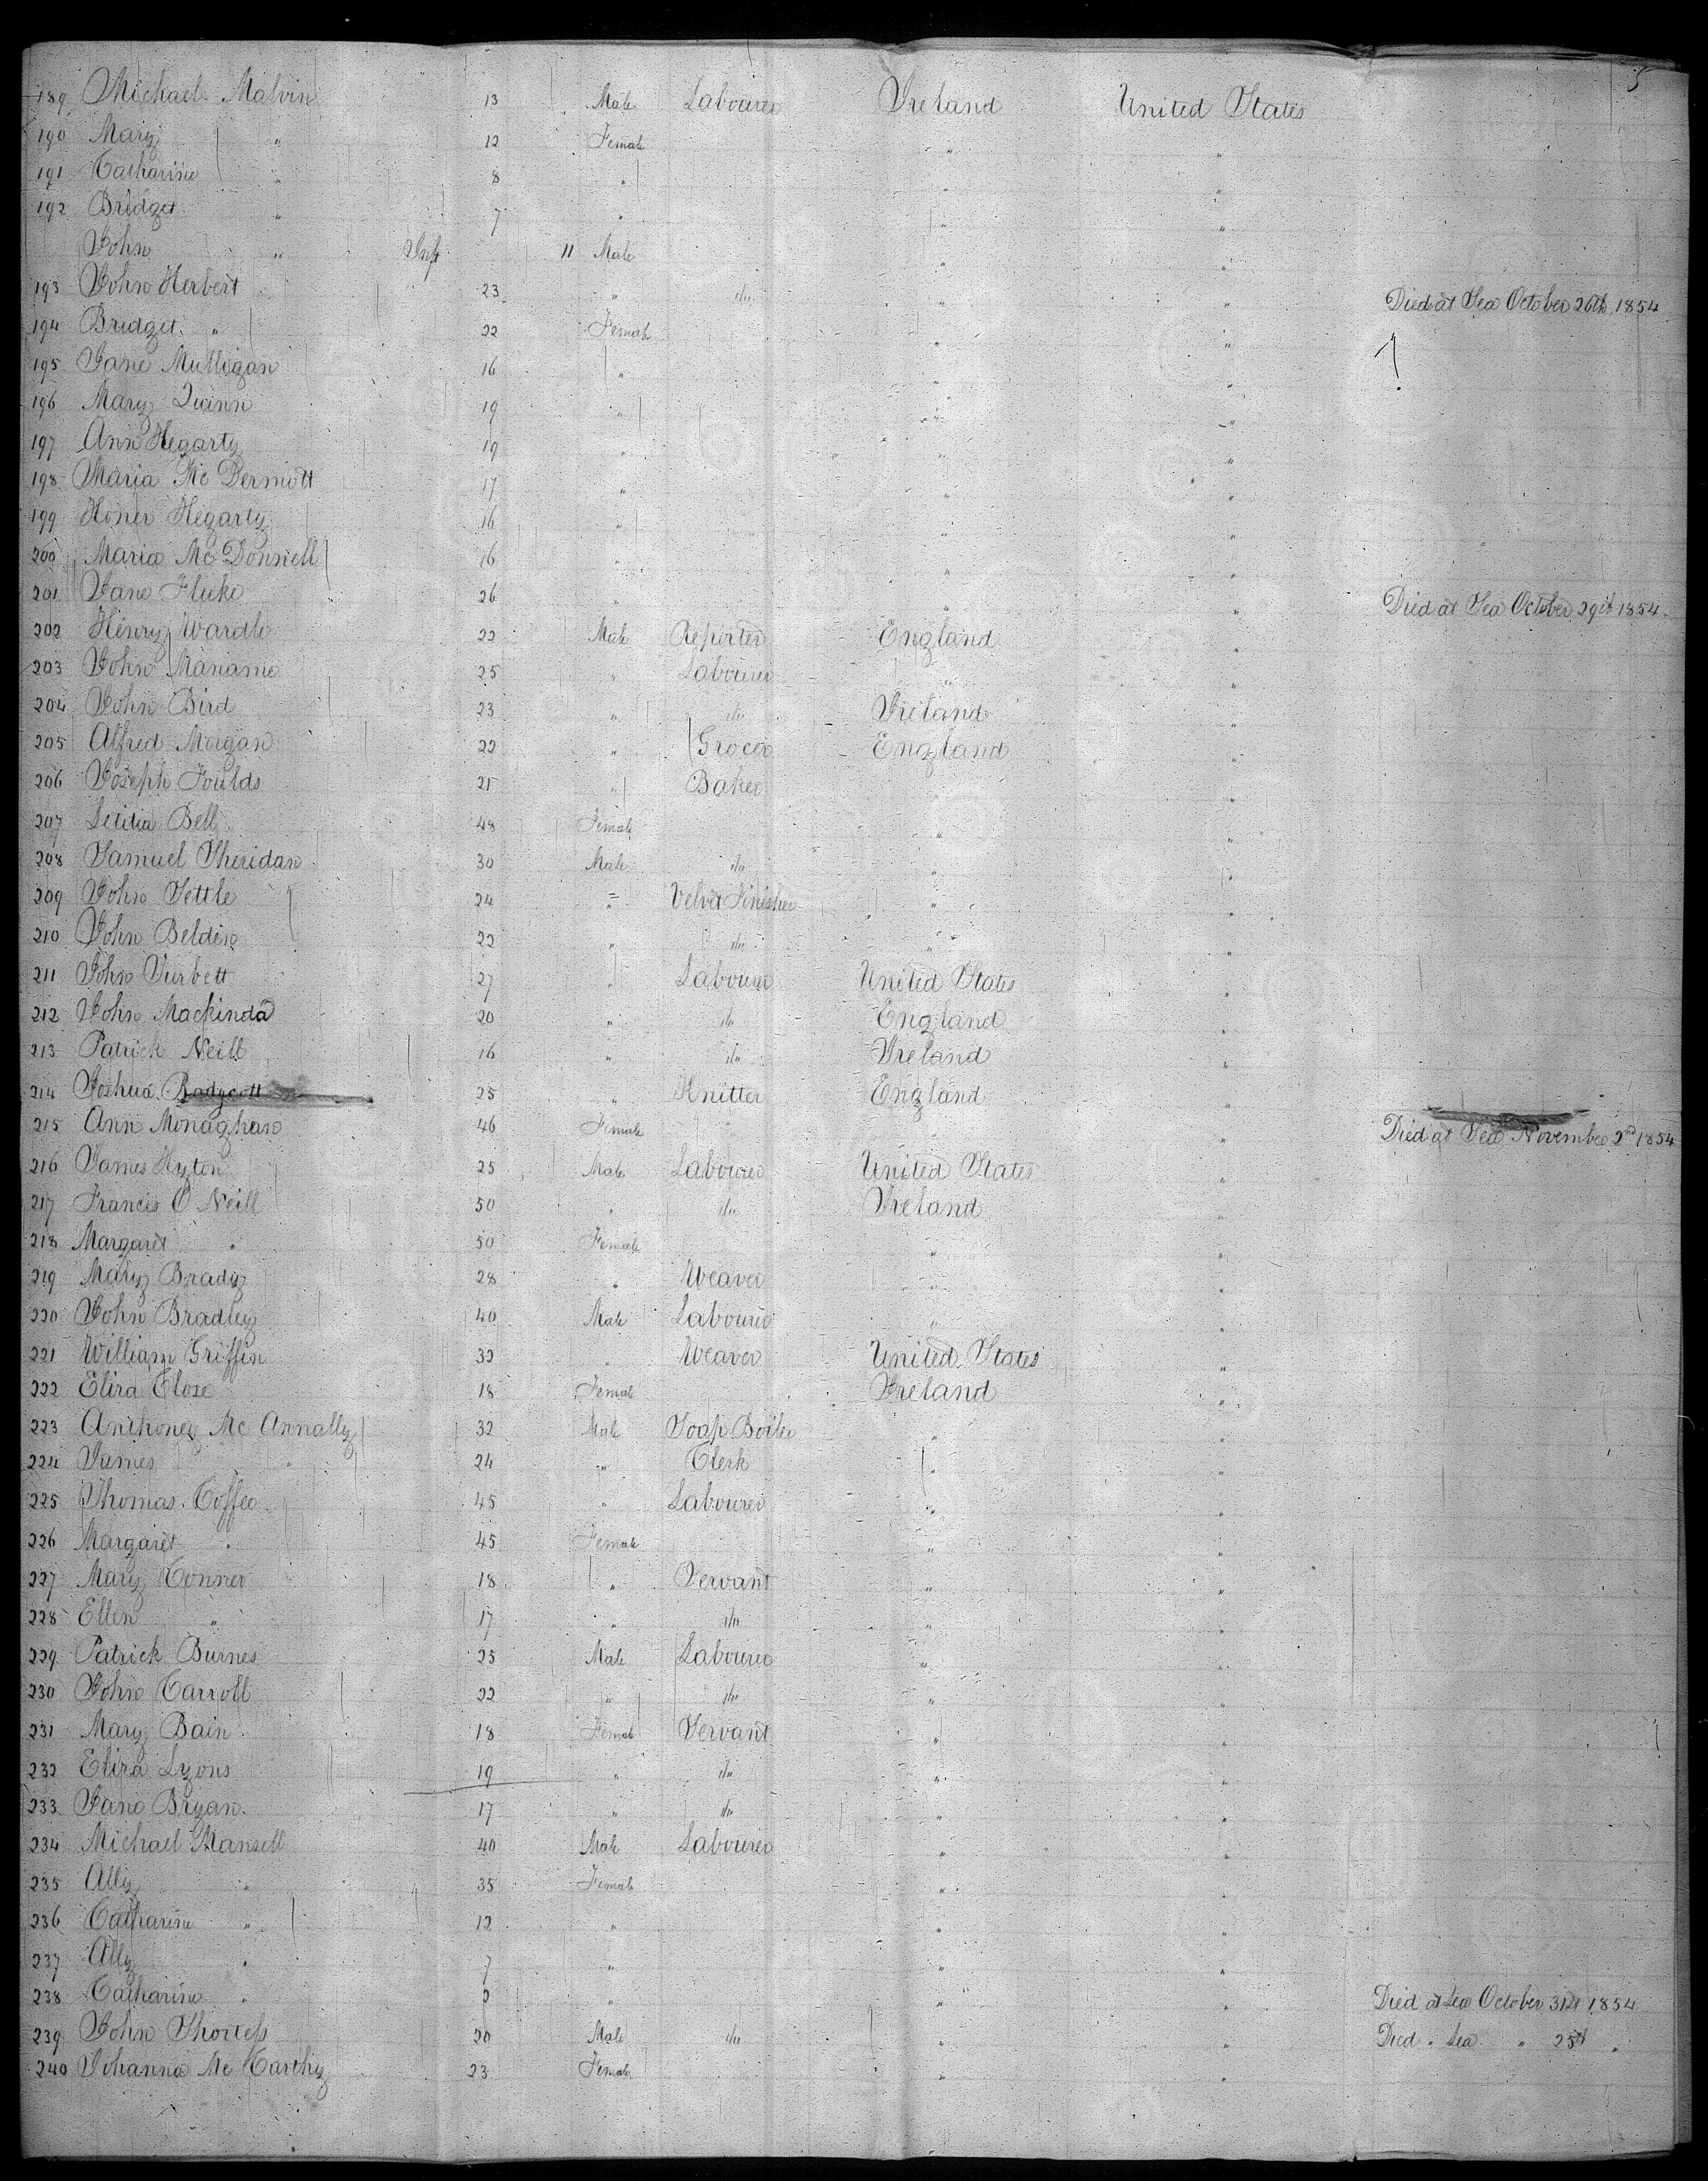 5
189 Michael Malvin 13 Male Labourer Ireland United States
190 Mary " 12 Female " "
191 Catharine " 8 " " "
192 Bridget " 7 " " "
John " Inft 11 Male " "
193 John Herbert 23 " do " " Died at Sea October 26th 1854
194 Bridget " 22 Female " "
195 Jane Mulligan 16 " " "
196 Mary Quinn 19 " " "
197 Ann Hegarty 19 " " "
198 Maria Mc Dermott 17 " " "
199 Honer Hegarty 16 " " "
200 Maria Mc Donnell 16 " " "
201 Jane Fluke 26 " " " Died at Sea October 29th 1854
202 Henry Wardle 22 Male Reporter England "
203 John Maname 25 " Labourer " "
204 John Bird 23 " do Ireland "
205 Alfred Morgan 22 " Grocer England "
206 Joseph Foulds 21 " Baker " "
207 Letitia Bell 48 Female " "
208 Samuel Sheridan 30 Male do " "
209 John Settle 24 " Velvet Finisher " "
210 John Beldin 22 " do " "
211 John Turbett 27 " Labourer United States "
212 John Mackinda 20 " do England "
213 Patrick Neill 16 " do Ireland "
214 Joshua 25 " Knitter England "
215 Ann Monaghan 46 Female " " Died at Sea November 2nd 1854
216 James Hyton 25 Male Labourer United States "
217 Francis O Neill 50 " do Ireland "
218 Margaret " 50 Female " "
219 Mary Brady 28 " Weaver " "
220 John Bradley 40 Male Labourer " "
221 William Griffin 32 " Weaver United States "
222 Eliza Close 18 Female Ireland "
223 Anthoney Mc Annally 32 Male Soap Boiler " "
224 James " 24 " Clerk " "
225 Thomas Coffee 45 " Labourer " "
226 Margaret " 45 Female " "
227 Mary Conner 18 " Servant " "
228 Ellen " 17 " do " "
229 Patrick Burnes 25 Male Labourer " "
230 John Carroll 22 " do " "
231 Mary Bain 18 Female Servant " "
232 Eliza Lyons 19 " do " "
233 Jane Bryan 17 " do " "
234 Michael Mansell 40 Male Labourer " "
235 Ally " 35 Female " "
236 Catharine " 12 " " "
237 Ally " 7 " " "
238 Catharine " 2 " " " Died at Sea October 31st 1854
239 John Shortess 20 Male do " " Died " Sea " 25th "
240 Johanna Mc Carthy 23 Female " "